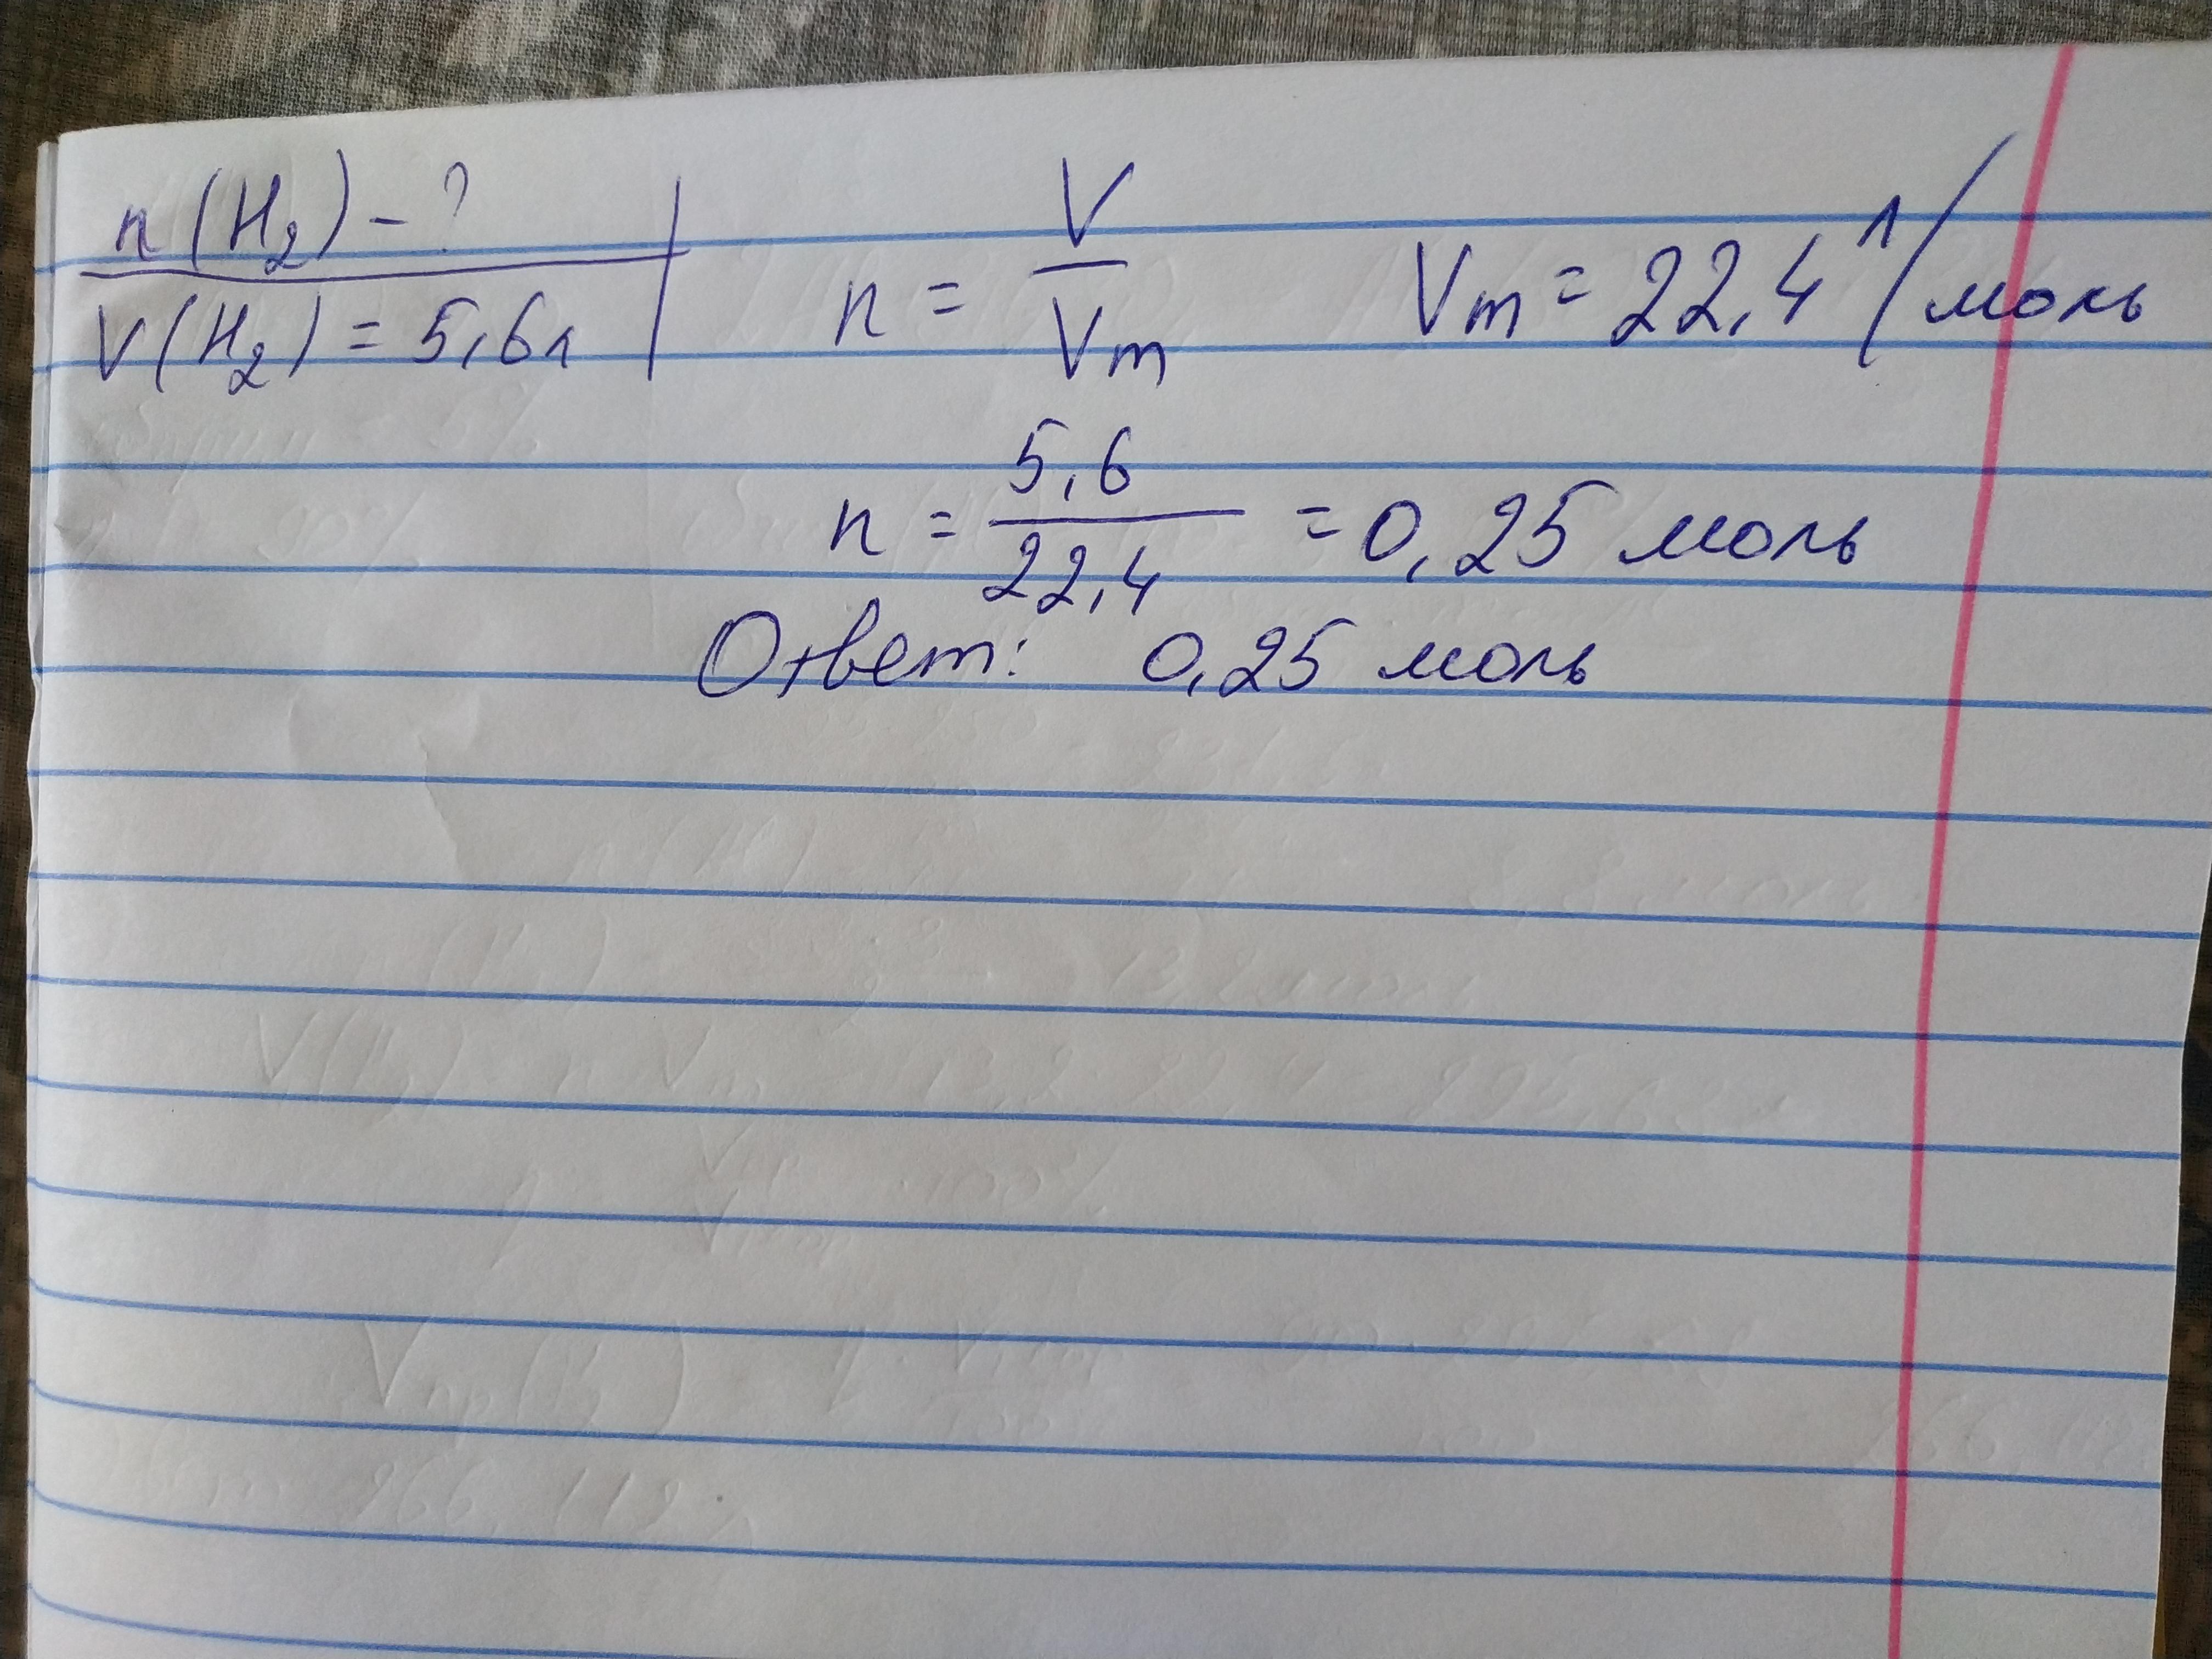 n (H₂) - ?
V (H₂) = 5,6л
n = V/Vm Vm = 22,4 л/моль
n = 5,6/22,4 = 0,25 моль
Ответ: 0,25 моль